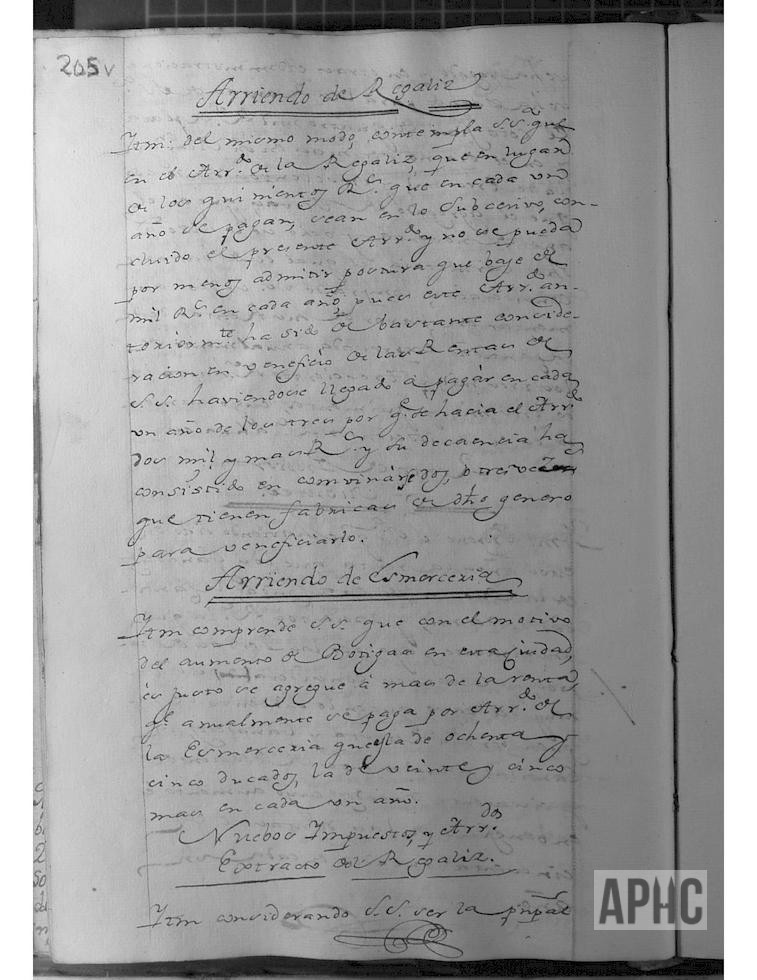 205v
Arriendo de Regaliz
Itm. del mismo modo, contempla S.Sa. que
en el Arrdo. de la Regaliz, que en lugar
de los quinientos Rs. que en cada un
año se pagan, sean en lo Subcesivo, con-
cluido el presente Arrdo. y no se pueda
por menos admitir postura que baje de
mil Rs. en cada año, pues este Arrdo. an-
teriormte. ha sido de bastante conside-
racion en veneficio de las Rentas de
S.S. haviendose llegado a pagar en cada
un año de los tres por qe. se hacia el Arrdo.
dos mil y mas Rs. y su decaencia ha
consistido en convinarse dos, o tres
que tienen fabricas de dho genero
para veneficiarlo.
Arriendo de Esmerceria
Itm comprende S.S. que con el motivo
del aumento de Botigas en esta Ciudad,
es justo se agregue à mas de la renta,
qe. anualmente se paga por Arrdo. de
la Esmerceria que es la de ochenta y
cinco ducados, la de veinte y cinco
mas en cada un año.
Nuebos Impuestos, y Arrdos.
Extracto del Regaliz.
Itm considerando S.S. ser la pnpal
APHC